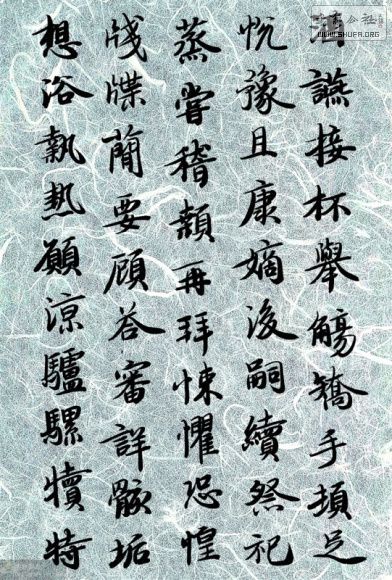 讌接杯舉觴矯手頓足
悅豫且康嫡後嗣續祭祀
蒸嘗稽顙再拜悚懼恐惶
牋牒簡要顧荅審詳骸垢
想浴執熱願涼驢騾犢特
WWW.SHUFA.ORG